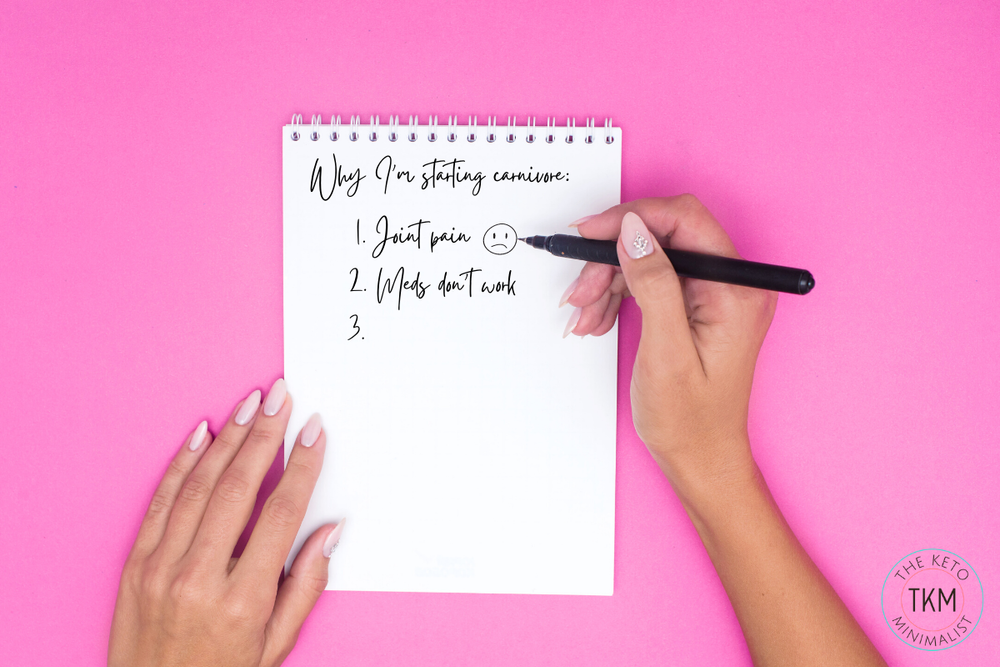 Why I'm starting carnivore:
1. Joint pain
2. Meds don't work
3.
THE KETO
TKM
MINIMALIST